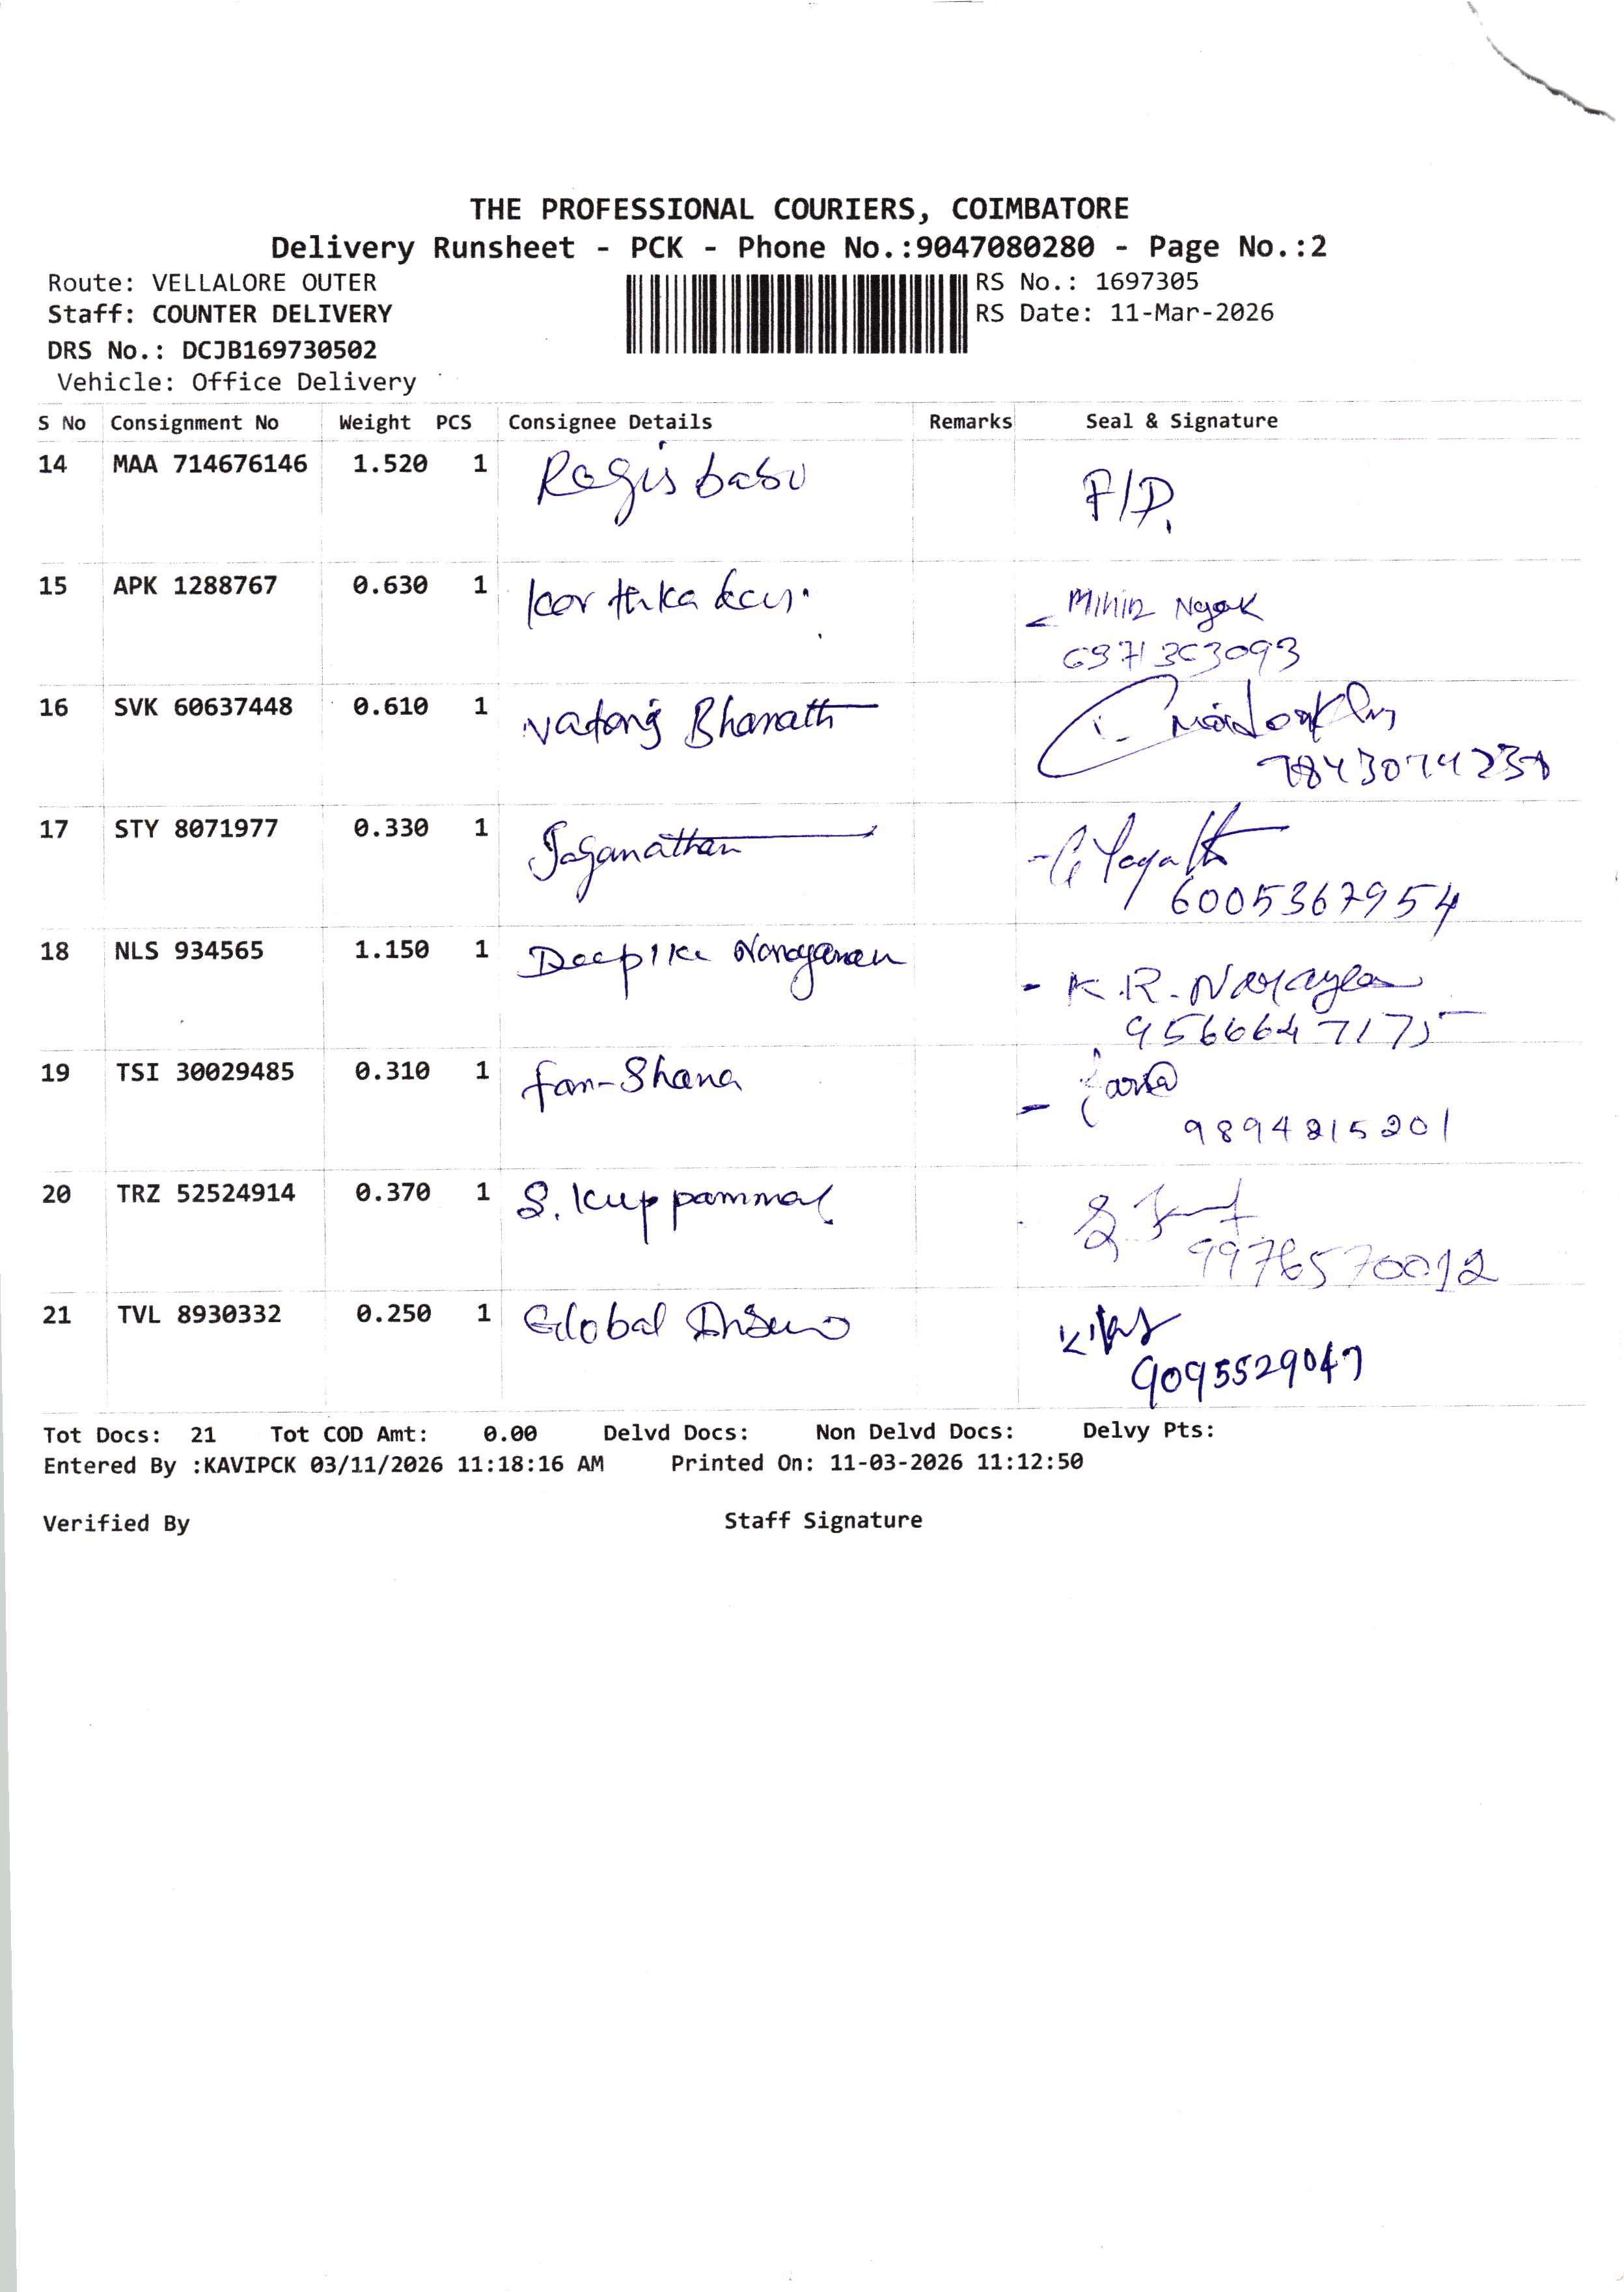 THE PROFESSIONAL COURIERS, COIMBATORE
Delivery Runsheet - PCK - Phone No.:9047080280 - Page No.:2
Route: VELLALORE OUTER RS No.: 1697305
Staff: COUNTER DELIVERY RS Date: 11-Mar-2026
DRS No.: DCJB169730502
Vehicle: Office Delivery
S No Consignment No Weight PCS Consignee Details Remarks Seal & Signature
14 MAA 714676146 1.520 1 Regis babu F/D.
15 APK 1288767 0.630 1 Mihir
16 SVK 60637448 0.610 1 Bharath
17 STY 8071977 0.330 1 Jaganathan
6005367954
18 NLS 934565 1.150 1 Deepika Narayanan - K.R.
9566647175
19 TSI 30029485 0.310 1 fam-Shana
9894215201
20 TRZ 52524914 0.370 1 S. Kuppammal
9976570012
21 TVL 8930332 0.250 1 Global
9095529047
Tot Docs: 21 Tot COD Amt: 0.00 Delvd Docs: Non Delvd Docs: Delvy Pts:
Entered By :KAVIPCK 03/11/2026 11:18:16 AM Printed On: 11-03-2026 11:12:50
Verified By Staff Signature